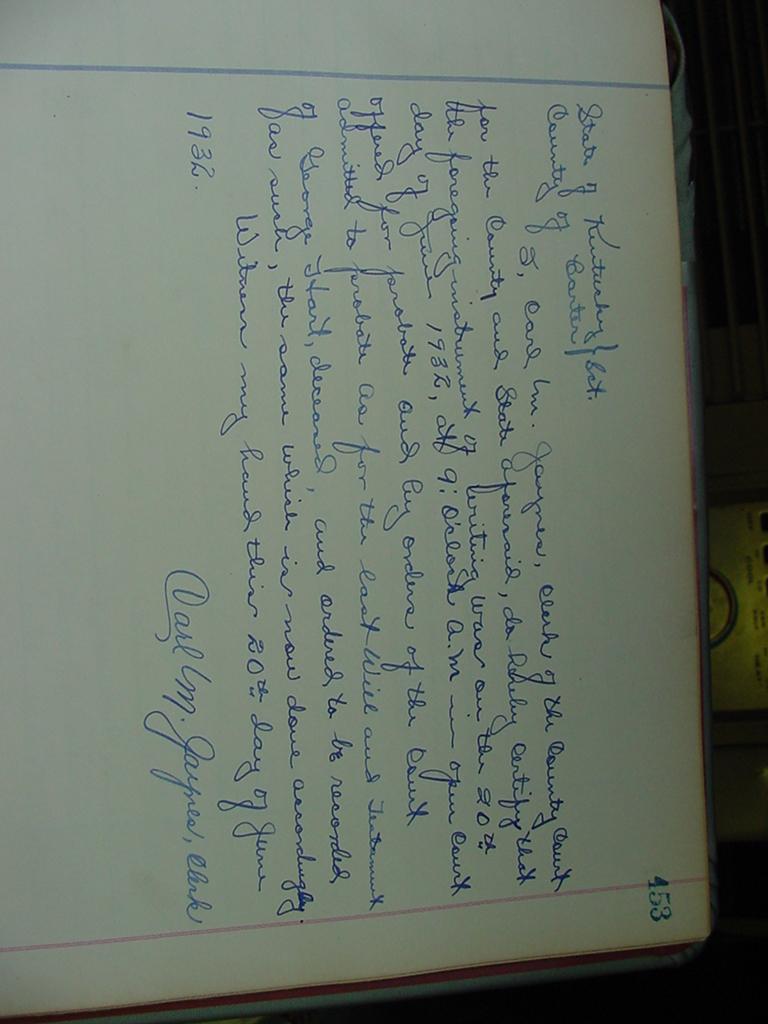 453
State of Kentucky }
County of Carter } Sct.
I, Carl M. Jaynes, Clerk of the County Court
for the County and State aforesaid, do hereby certify that
the foregoing instrument of writing was on the 20th
day of June 1932, at 9: O'clock A.M in open Court
offered for probate and by orders of the Court
admitted to probate as for the last Will and Testament
of George Hart, deceased, and ordered to be recorded
as such, the same which is now done accordingly.
Witness my hand this 20th day of June
1932.
Carl M. Jaynes, Clerk